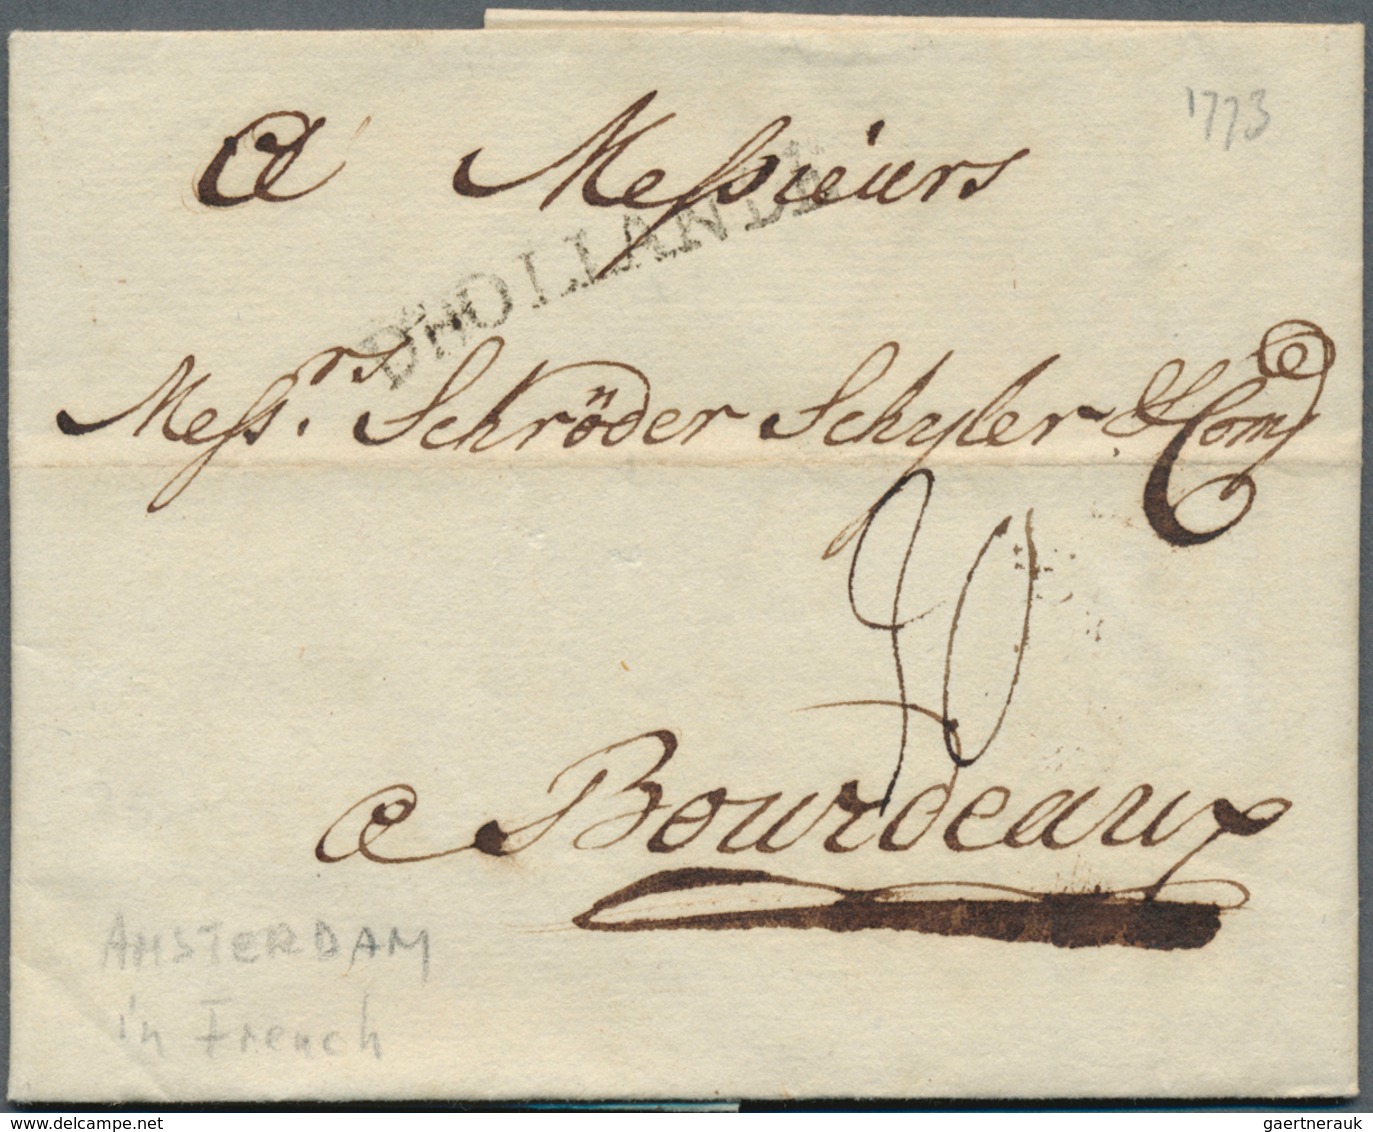 1773
A Messieurs
DHOLLANDE
Mess.rs Schröder Schyler & Comp
a Bourdeaux
AMSTERDAM
in French
delcampe.net
gaertnerauk